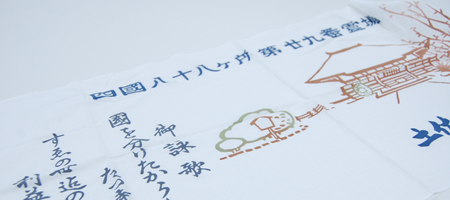 四國八十八ヶ所 第廿九番霊場
御詠歌
國を分けたから
たつ寺
すゑの世迄の
利益